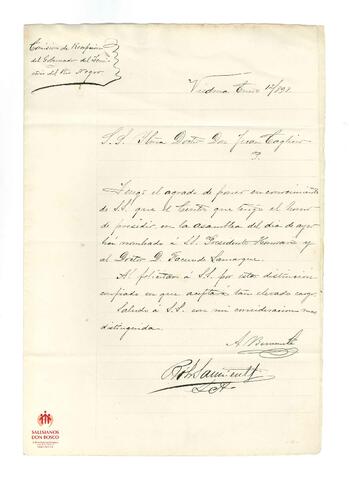 Comision de Recepcion
del Gobernador del Terri-
torio del Rio Negro
Viedma Enero 17/898
S. S. Iltma Doctor Don Juan Cagliero
Tengo el agrado de poner en conocimiento
de S.S. que el Centro que tengo el honor
de presidir, en la asamblea del dia de ayer
han nombrado á SS. Presidente Honorario y
al Doctor D. Facundo Lamarque.
Al felicitar á S.S. por esta distincion
confiado en que aceptará tan elevado cargo,
Saludo á S.S. con mi consideracion mas
distinguida.
A. Benavente
SALESIANOS
DON BOSCO